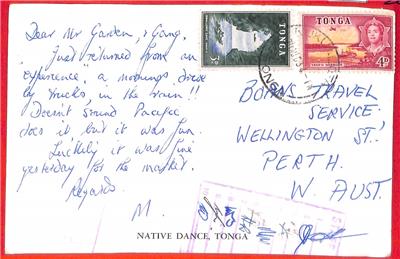 Dear Mr Garden, & Gang.
Just returned from an
experience, a mornings drive
by trucks, in the rain!!
Doesn't sound Pacific
does it, but it was fun.
Luckily it was fine
yesterday for the market.
Regards.
M.
NATIVE DANCE, TONGA
TONGA
3D
TONGA
4D
TRAVEL
SERVICE.
WELLINGTON ST.,
PERTH.
W. AUST.